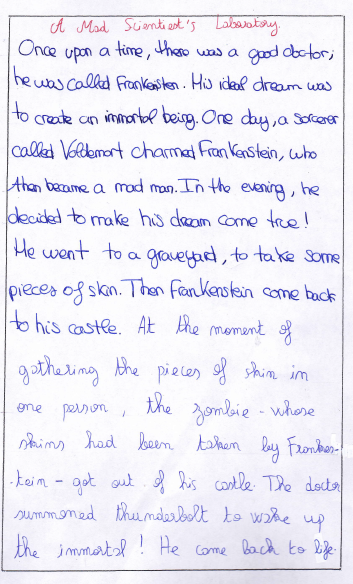 A Mad Scientist's Laboratory.
Once upon a time, there was a good doctor;
he was called Frankenstein. His ideal dream was
to create an immortal being. One day, a sorcerer
called Voldemort charmed Frankenstein, who
then became a mad man. In the evening, he
decided to make his dream come true!
He went to a graveyard, to take some
pieces of skin. Then Frankenstein come back
to his castle. At the moment of
gathering the pieces of skin in
one person, the zombie - whose
skins had been taken by Franken-
-tein - got out of his castle. The doctor
summoned thunderbolt to wake up
the immortal! He come back to life.